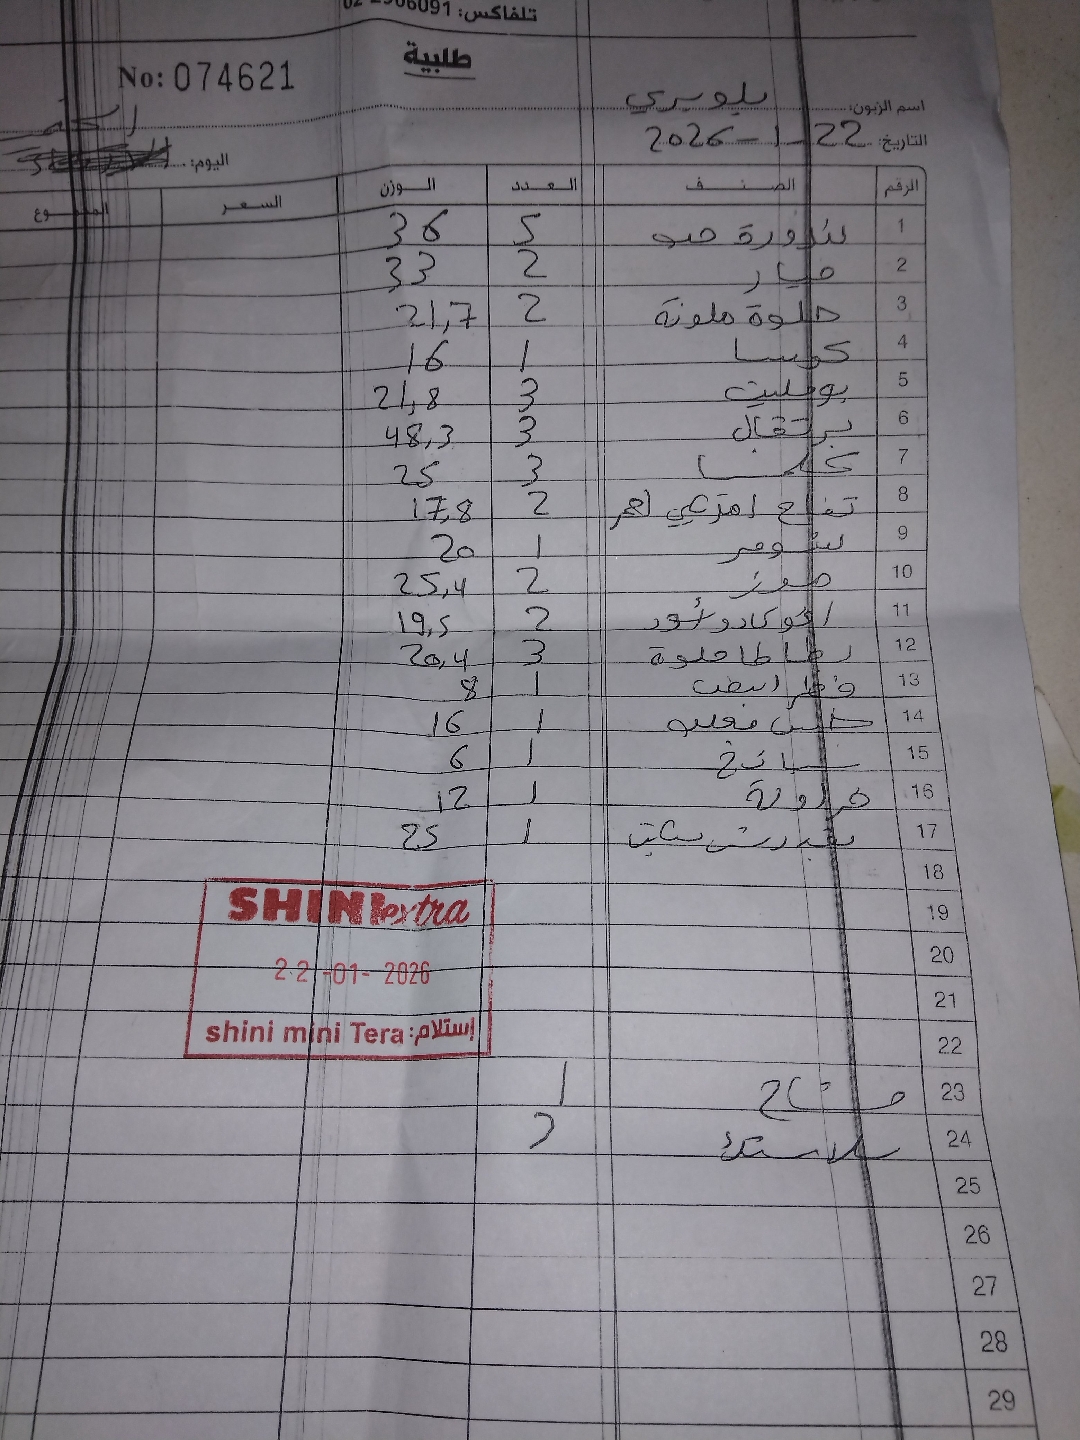 تلفاكس: 02 2906091
طلبية
No: 074621
اسم الزبون: بلوبيري
التاريخ: 22-1-2026
اليوم:
الرقم الصنف العدد الوزن السعر المجموع
1 بندورة حبه 5 36
2 خيار 2 33
3 حلوة ملونة 2 21,7
4 كوسا 1 16
5 بوملي 3 21,8
6 برتقال 3 48,3
7 3 25
8 تفاح احمر 2 17,8
9 شومر 1 20
10 موز 2 25,4
11 افوكادو أسود 2 19,5
12 بطاطا حلوة 3 20,4
13 فطر ابيض 1 8
14 خس 1 16
15 سبانخ 1 6
16 فراولة 1 12
17 1 25
18
19
20
21
22
SHINI extra
22-01-2026
shini mini Tera إستلام:
23 1
24 بلاستك 2
25
26
27
28
29